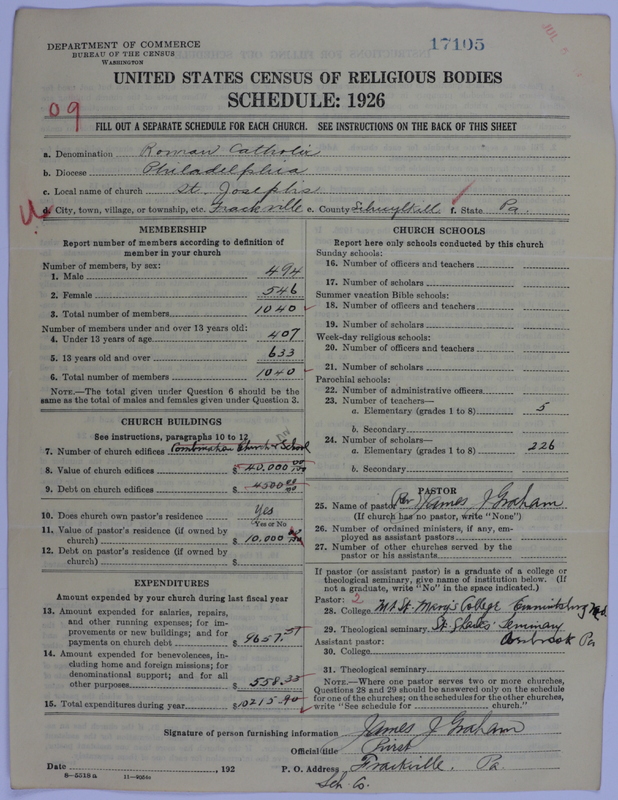 DEPARTMENT OF COMMERCE
BUREAU OF THE CENSUS
WASHINGTON
17105
UNITED STATES CENSUS OF RELIGIOUS BODIES
SCHEDULE: 1926
09
FILL OUT A SEPARATE SCHEDULE FOR EACH CHURCH. SEE INSTRUCTIONS ON THE BACK OF THIS SHEET
a. Denomination Roman Catholic
b. Diocese Philadelphia
c. Local name of church St. Joseph's
d. City, town, village, or township, etc. Frackville e. County Schuylkill f. State Pa.
MEMBERSHIP
Report number of members according to definition of
member in your church
Number of members, by sex:
1. Male 494
2. Female 546
3. Total number of members 1040
Number of members under and over 13 years old:
4. Under 13 years of age 407
5. 13 years old and over 633
6. Total number of members 1040
NOTE.—The total given under Question 6 should be
the same as the total of males and females given under Question 3.
CHURCH BUILDINGS
See instructions, paragraphs 10 to 12
7. Number of church edifices Combination Church & School
8. Value of church edifices $ 40.000 00
9. Debt on church edifices $ 4500 00
10. Does church own pastor's residence? Yes
Yes or No
11. Value of pastor's residence (if owned by
church) $ 10.000
12. Debt on pastor's residence (if owned by
church) $
EXPENDITURES
Amount expended by church during last fiscal year
13. Amount expended for salaries, repairs,
and other running expenses; for im-
provements or new buildings; and for
payments on church debt $ 9657.57
14. Amount expended for benevolences, in-
cluding home and foreign missions; for
denominational support; and for all
other purposes $ 558.33
15. Total expenditures during year $ 10215.90
CHURCH SCHOOLS
Report here only schools conducted by this church
Sunday schools:
16. Number of officers and teachers
17. Number of scholars
Summer vacation Bible schools:
18. Number of officers and teachers
19. Number of scholars
Week-day religious schools:
20. Number of officers and teachers
21. Number of scholars
Parochial schools:
22. Number of administrative officers
23. Number of teachers—
a. Elementary (grades 1 to 8) 5
b. Secondary
24. Number of scholars—
a. Elementary (grades 1 to 8) 226
b. Secondary
PASTOR
25. Name of pastor Rev James J Graham
(If church has no pastor, write "None")
26. Number of ordained ministers, if any, em-
ployed as assistant pastors
27. Number of other churches served by the
pastor or his assistants
If pastor (or assistant pastor) is a graduate of a college or
theological seminary, give name of institution below. (If
not a graduate, write "No" in the space indicated.)
Pastor: 2
28. College Mt St. Mary's College Emmitsburg Md.
29. Theological seminary St. Charles' Seminary
Assistant pastor: Overbrook Pa
30. College
31. Theological seminary
NOTE.—Where one pastor serves two or more churches,
Questions 28 and 29 should be answered only on the schedule
for one of the churches; on the schedules for the other churches,
write "See schedule for church."
Signature of person furnishing information James J Graham
Official title Priest
Date , 192 P. O. Address Frackville, Pa.
8—5518a 11—9054a Sch. Co.